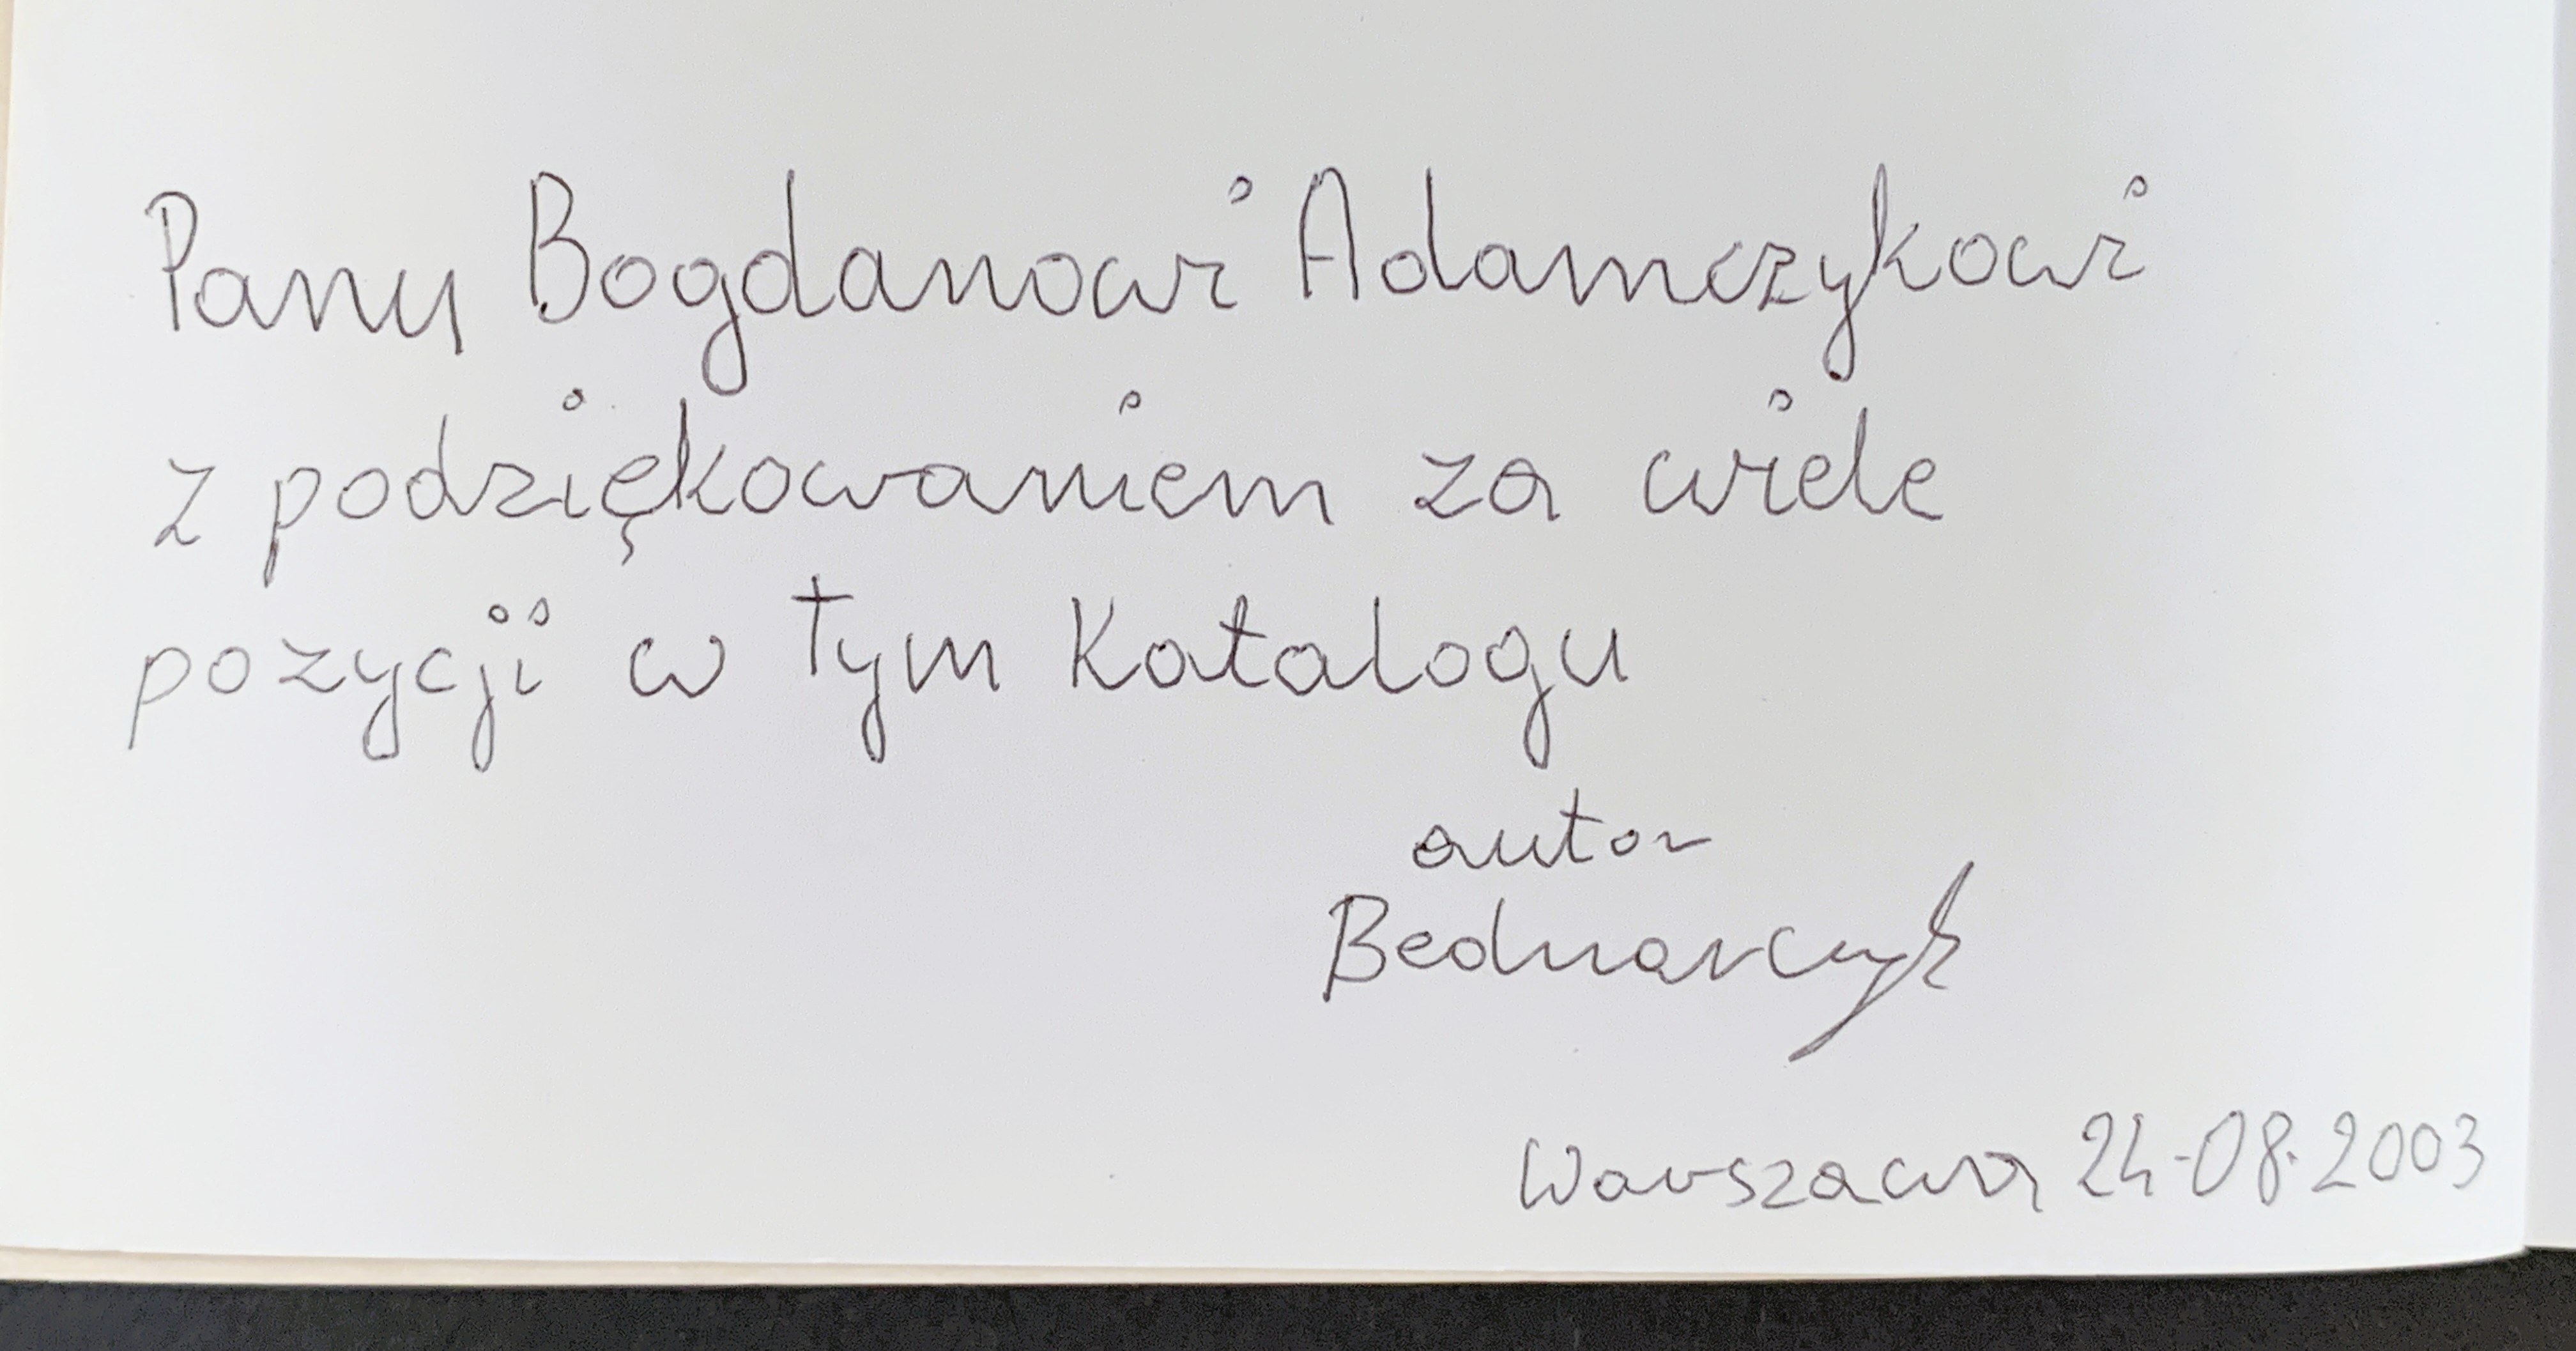 Panu Bogdanowi Adamczykowi
z podziękowaniem za wiele
pozycji w tym Katalogu
autor
Bednarczyk
Warszawa 24-08.2003